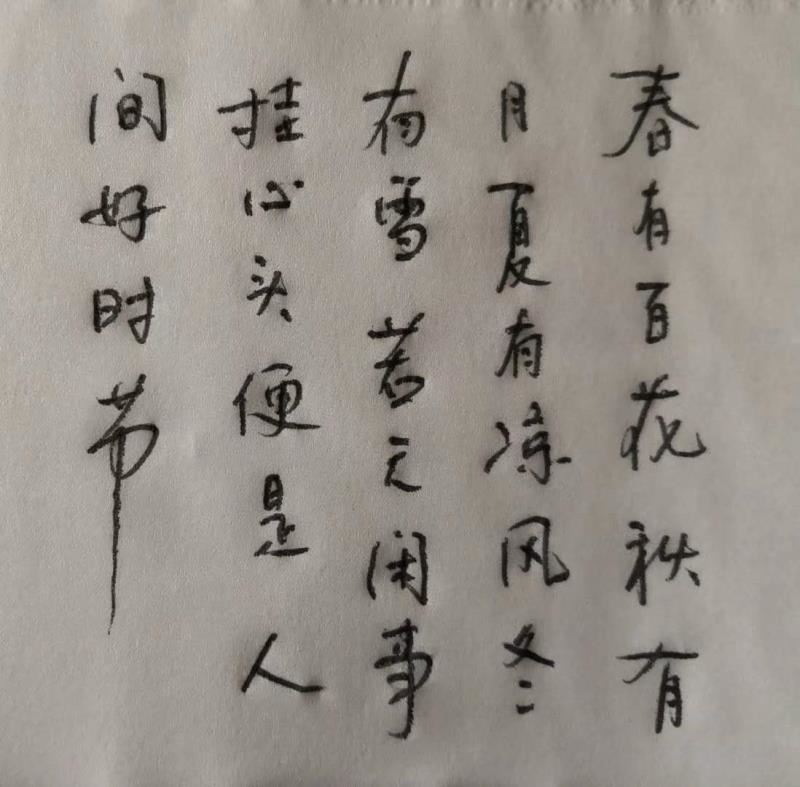 春有百花秋有
月夏有凉风冬
有雪若无闲事
挂心头便是人
间好时节